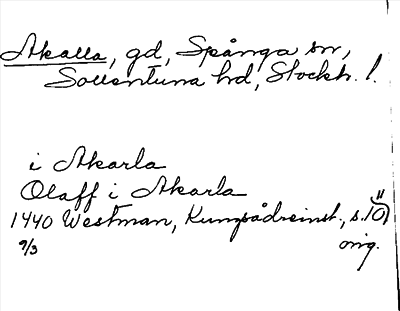 Akalla, gd, Spånga sn,
Sollentuna hd, Stockh. l.
i Akarla
Olaff i Akarla
1440 Westman, Kungsådreinst., s. 10
9/3 orig.